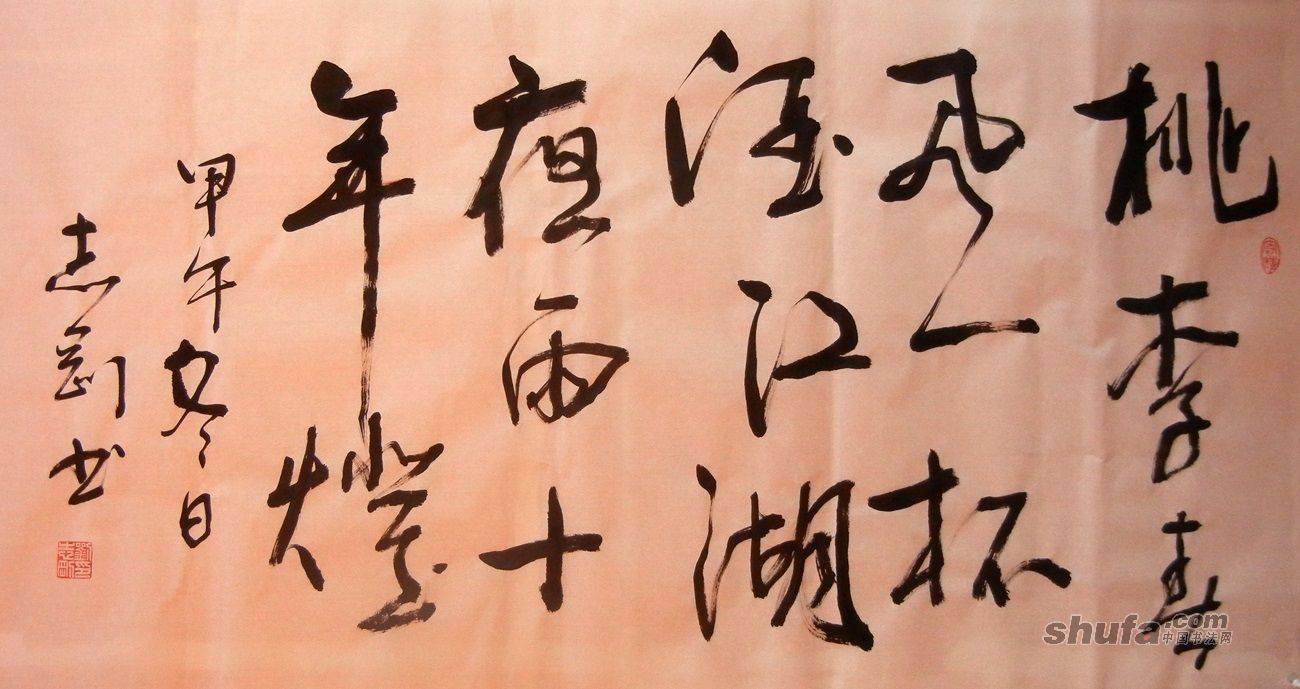 桃李春
风一杯
酒江湖
夜雨十
年燈
甲午冬日
志剛书
shufa.com
中国书法网